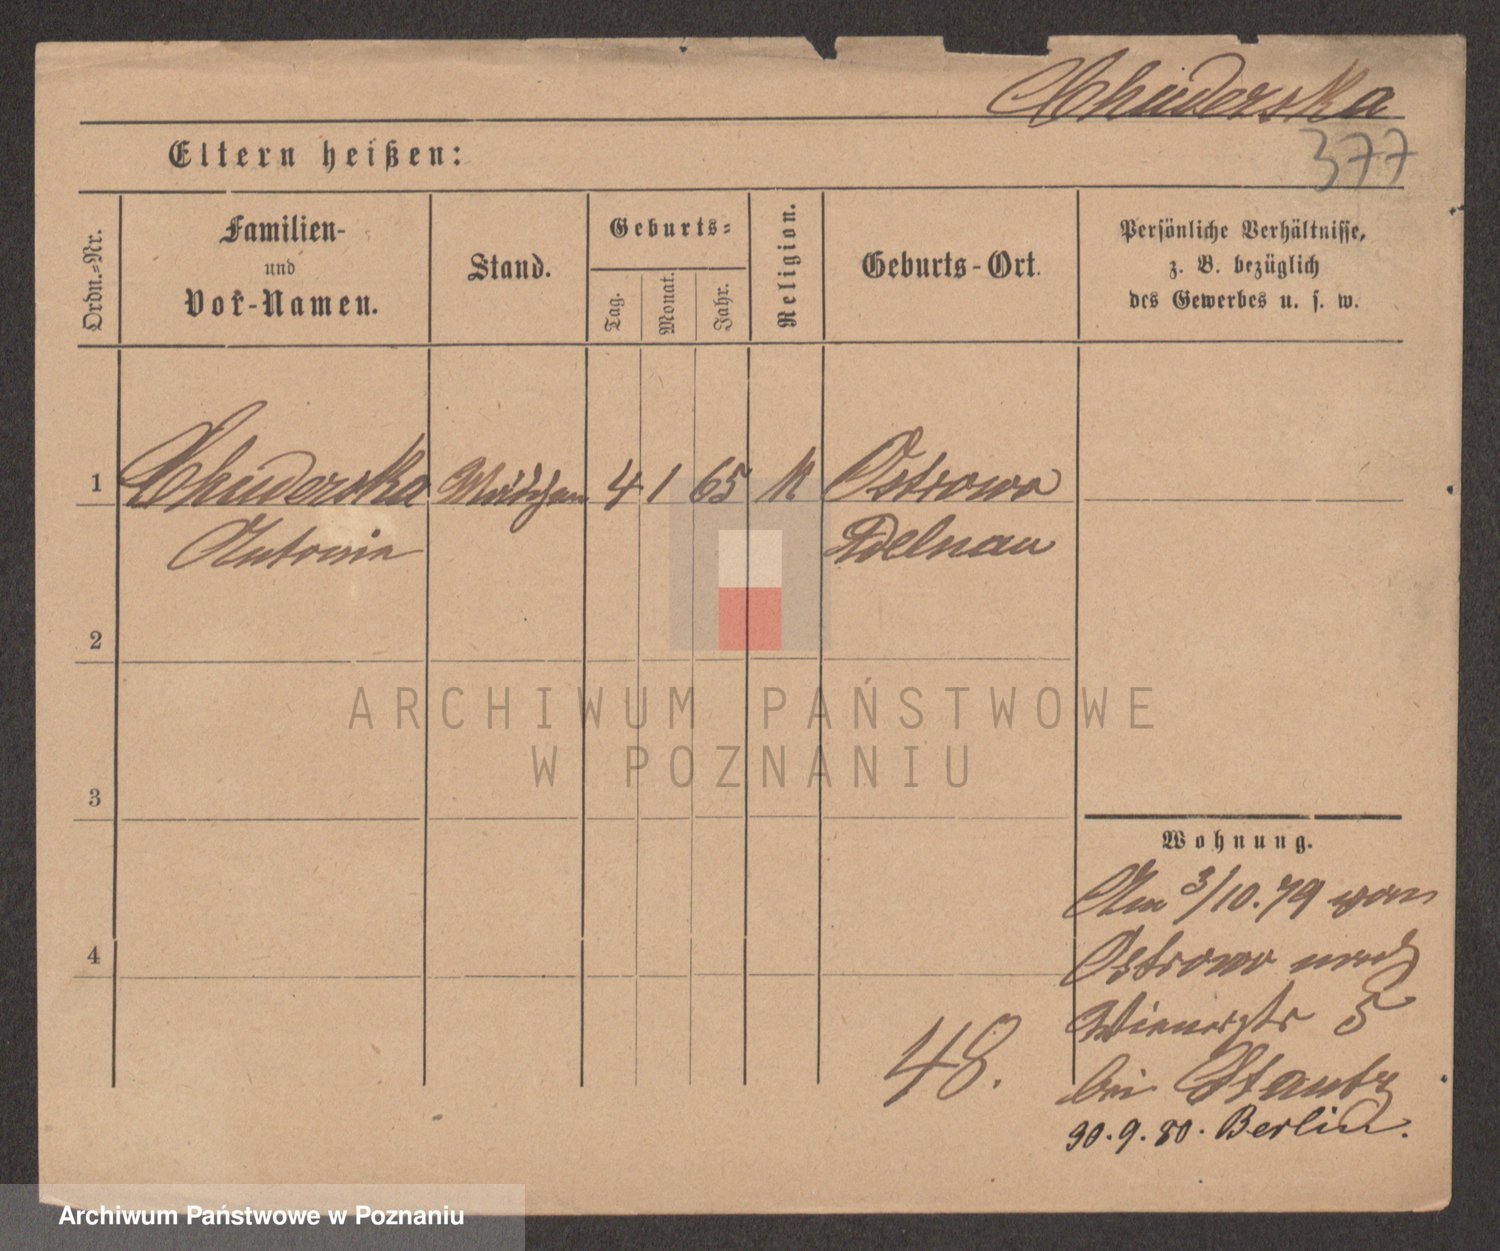 Chuderska
377
Eltern heißen:
Ordn.-Nr.
Familien-
und
Vor-Namen.
Stand.
Geburts-
Tag.
Monat.
Jahr.
Religion.
Geburts-Ort.
Persönliche Verhältnisse,
z. B. bezüglich
des Gewerbes u. s. w.
1 Chuderska Mädchen 4 1 65 K Ostrowo
Antonie Adelnau
2
3
4
ARCHIWUM PAŃSTWOWE
W POZNANIU
Wohnung.
Am 3/10.79 von
Ostrowo nach
Wienerstr 5
bei
30.9.80. Berlin.
48.
Archiwum Państwowe w Poznaniu